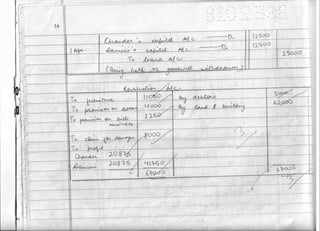 14
Chander's capital A/c Dr 12500
1 Apr. Damini's capital A/c Dr 12500
To Cash A/c 25000
(Being half of goodwill withdrawn)
Revaluation A/c
To furniture 11000 By debtors
To provision on 4000 By land & building 62000
To provision on bill 2250
To claim for damages 8000
To profit
Chander 20875
Damini 20875 41750
67000 67000